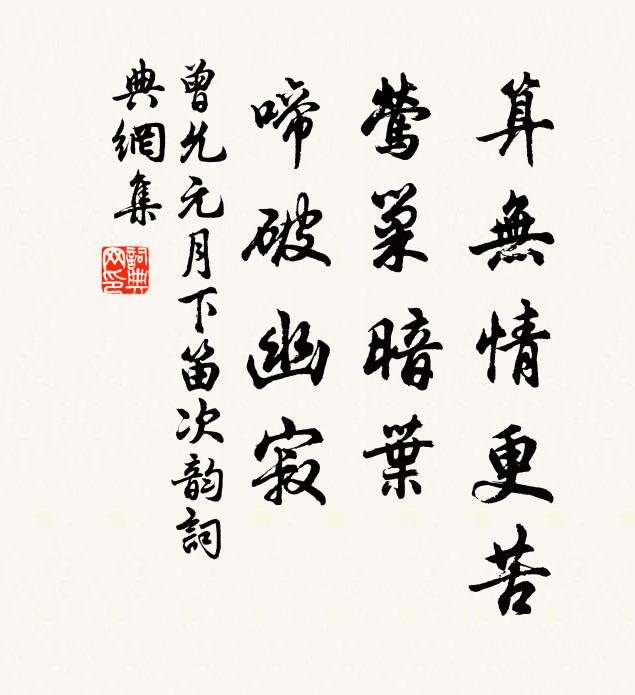 算無情更苦
鶯巢暗葉
啼破幽寂
曾允元月下笛次韵詞
典網集
詞典网印